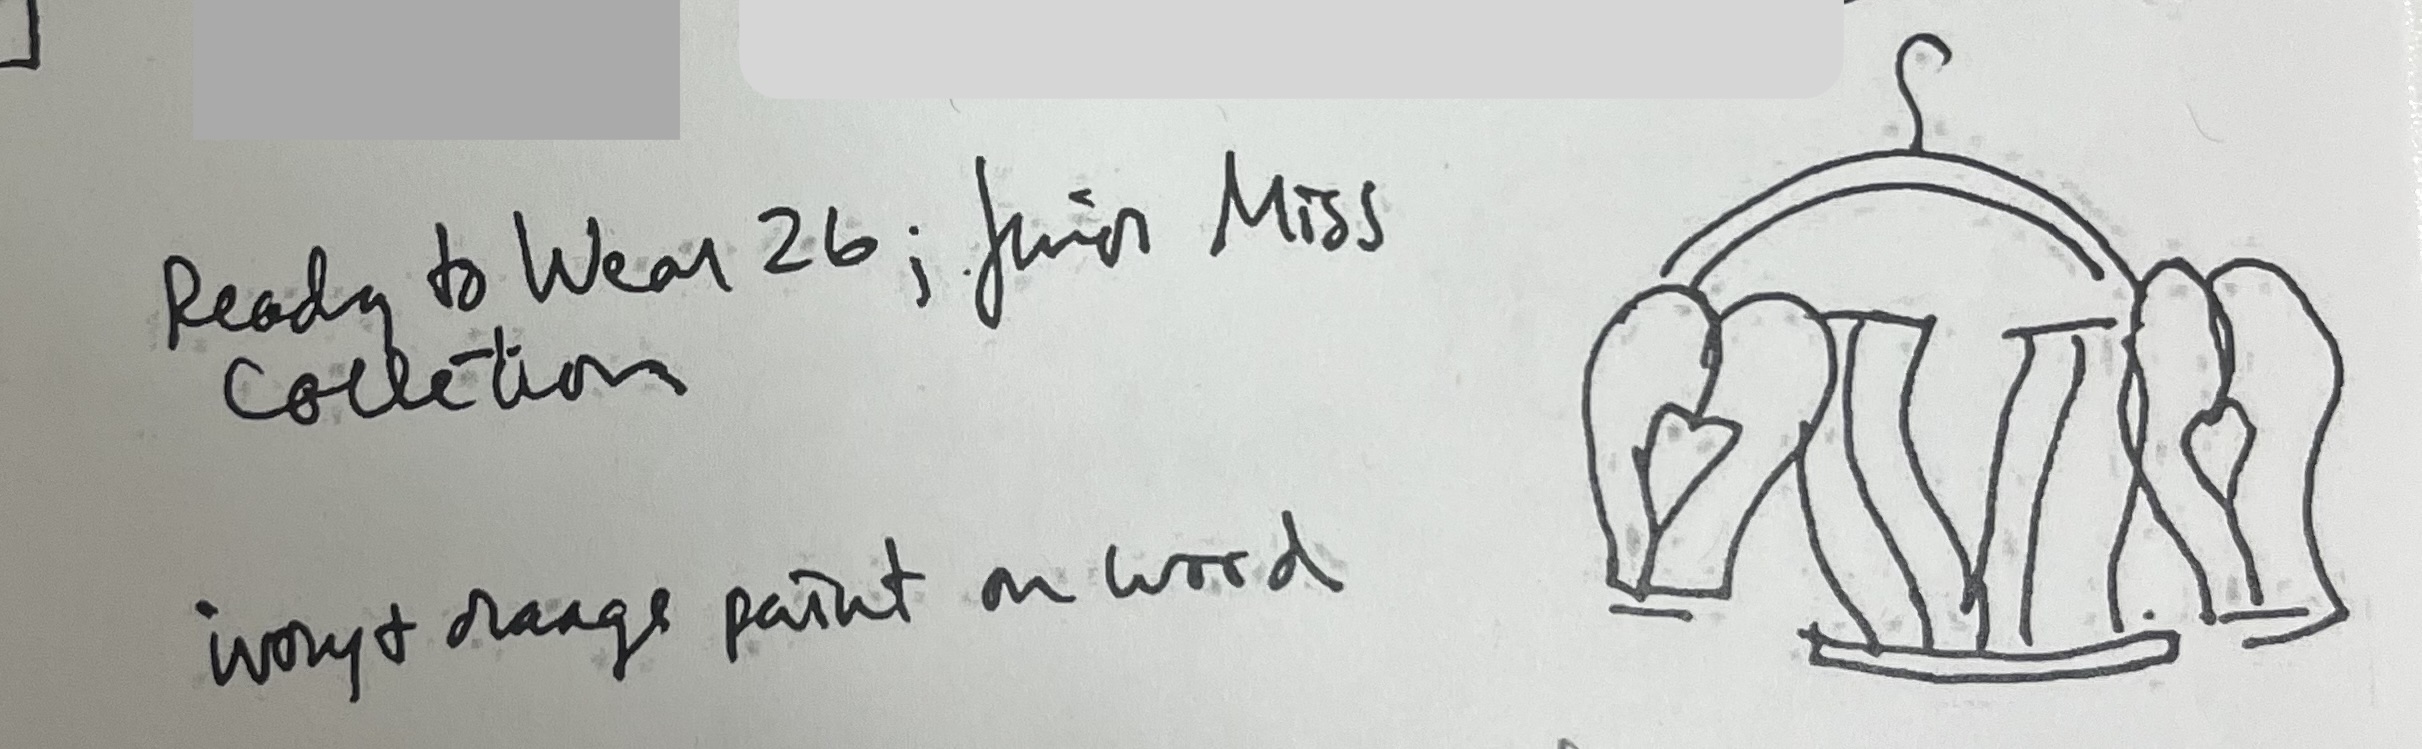 Ready to Wear 26; Junior Miss
Collection
ivory + orange paint on wood